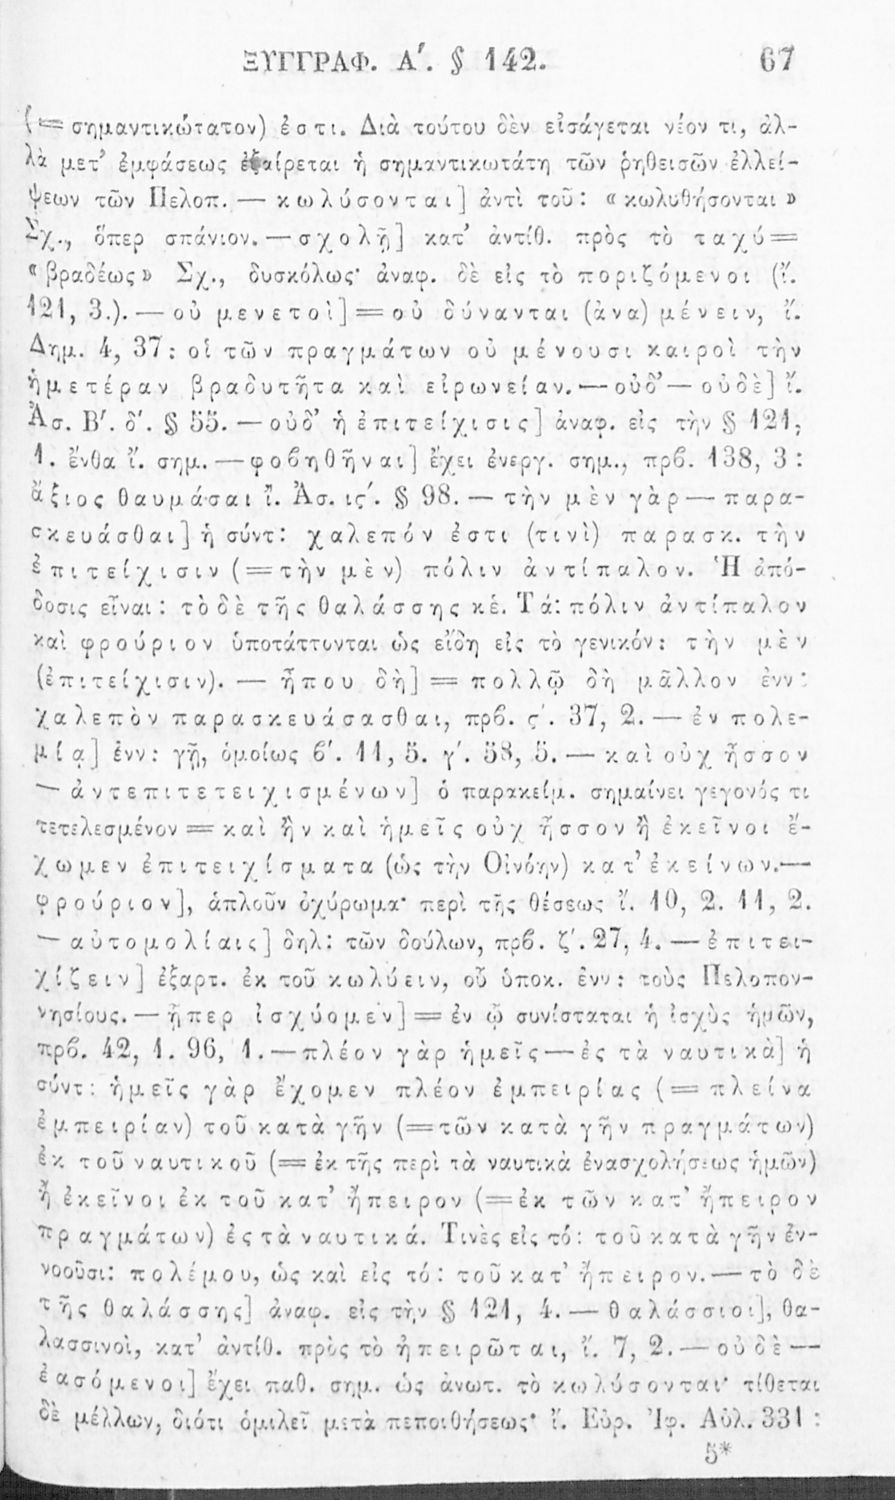 ΞΥΓΓΡΑΦ. Α΄. § 142. 67
(= σημαντικώτατον) ἐστι. Διὰ τούτου δὲν εἰσάγεται νέον τι, ἀλ-
λὰ μετ' ἐμφάσεως ἐξαίρεται ἡ σημαντικωτάτη τῶν ῥηθεισῶν ἐλλεί-
ψεων τῶν Πελοπ. — κωλύσονται] ἀντὶ τοῦ: «κωλυθήσονται»
Σχ., ὅπερ σπάνιον. — σχολῇ] κατ' ἀντίθ. πρὸς τὸ ταχύ =
«βραδέως» Σχ., δυσκόλως· ἀναφ. δὲ εἰς τὸ ποριζόμενοι (ἴ.
121, 3.). — οὐ μενετοὶ] = οὐ δύνανται (ἀνα) μένειν, ἴ.
Δημ. 4, 37: οἱ τῶν πραγμάτων οὐ μένουσι καιροὶ τὴν
ἡμετέραν βραδυτῆτα καὶ εἰρωνείαν. — οὐδ' — οὐδὲ] ἴ.
Ἀσ. Β΄. δ΄. § 55. — οὐδ' ἡ ἐπιτείχισις] ἀναφ. εἰς τὴν § 121,
1. ἔνθα ἴ. σημ. — φοβηθῆναι] ἔχει ἐνεργ. σημ., πρβ. 138, 3:
ἄξιος θαυμάσαι ἴ. Ἀσ. ις΄. § 98. — τὴν μὲν γὰρ — παρα-
σκευάσθαι] ἡ σύντ: χαλεπόν ἐστι (τινὶ) παρασκ. τὴν
ἐπιτείχισιν (= τὴν μὲν) πόλιν ἀντίπαλον. Ἡ ἀπό-
δοσις εἶναι: τὸ δὲ τῆς θαλάσσης κἑ. Τά: πόλιν ἀντίπαλον
καὶ φρούριον ὑποτάττονται ὡς εἴδη εἰς τὸ γενικόν: τὴν μὲν
(ἐπιτείχισιν). — ἦπου δὴ] = πολλῷ δὴ μᾶλλον ἐνν:
χαλεπὸν παρασκευάσασθαι, πρβ. ς΄. 37, 2. — ἐν πολε-
μίᾳ] ἐνν: γῇ, ὁμοίως β΄. 11, 5. γ΄. 58, 5. — καὶ οὐχ ἧσσον
— ἀντεπιτετειχισμένων] ὁ παρακείμ. σημαίνει γεγονός τι
τετελεσμένον = καὶ ἢν καὶ ἡμεῖς οὐχ ἧσσον ἢ ἐκεῖνοι ἔ-
χωμεν ἐπιτειχίσματα (ὡς τὴν Οἰνόην) κατ' ἐκείνων. —
φρούριον], ἁπλοῦν ὀχύρωμα· περὶ τῆς θέσεως ἴ. 10, 2. 11, 2.
— αὐτομολίαις] δηλ: τῶν δούλων, πρβ. ζ΄. 27, 4. — ἐπιτει-
χίζειν] ἐξαρτ. ἐκ τοῦ κωλύειν, οὗ ὑποκ. ἐνν: τοὺς Πελοπον-
νησίους. — ᾗπερ ἰσχύομεν] = ἐν ᾧ συνίσταται ἡ ἰσχὺς ἡμῶν,
πρβ. 42, 1. 96, 1. — πλέον γὰρ ἡμεῖς — ἐς τὰ ναυτικὰ] ἡ
σύντ: ἡμεῖς γὰρ ἔχομεν πλέον ἐμπειρίας (= πλείνα
ἐμπειρίαν) τοῦ κατὰ γῆν (= τῶν κατὰ γῆν πραγμάτων)
ἐκ τοῦ ναυτικοῦ (= ἐκ τῆς περὶ τὰ ναυτικὰ ἐνασχολήσεως ἡμῶν)
ἢ ἐκεῖνοι ἐκ τοῦ κατ' ἤπειρον (= ἐκ τῶν κατ' ἤπειρον
πραγμάτων) ἐς τὰ ναυτικά. Τινὲς εἰς τό: τοῦ κατὰ γῆν ἐν-
νοοῦσι: πολέμου, ὡς καὶ εἰς τό: τοῦ κατ' ἤπειρον. — τὸ δὲ
τῆς θαλάσσης] ἀναφ. εἰς τὴν § 121, 4. — θαλάσσιοι], θα-
λασσινοὶ, κατ' ἀντίθ. πρὸς τὸ ἠπειρῶται, ἴ. 7, 2. — οὐδὲ —
ἐασόμενοι] ἔχει παθ. σημ. ὡς ἀνωτ. τὸ κωλύσονται· τίθεται
δὲ μέλλων, διότι ὁμιλεῖ μετὰ πεποιθήσεως· ἴ. Εὐρ. Ἰφ. Αὐλ. 331:
5*